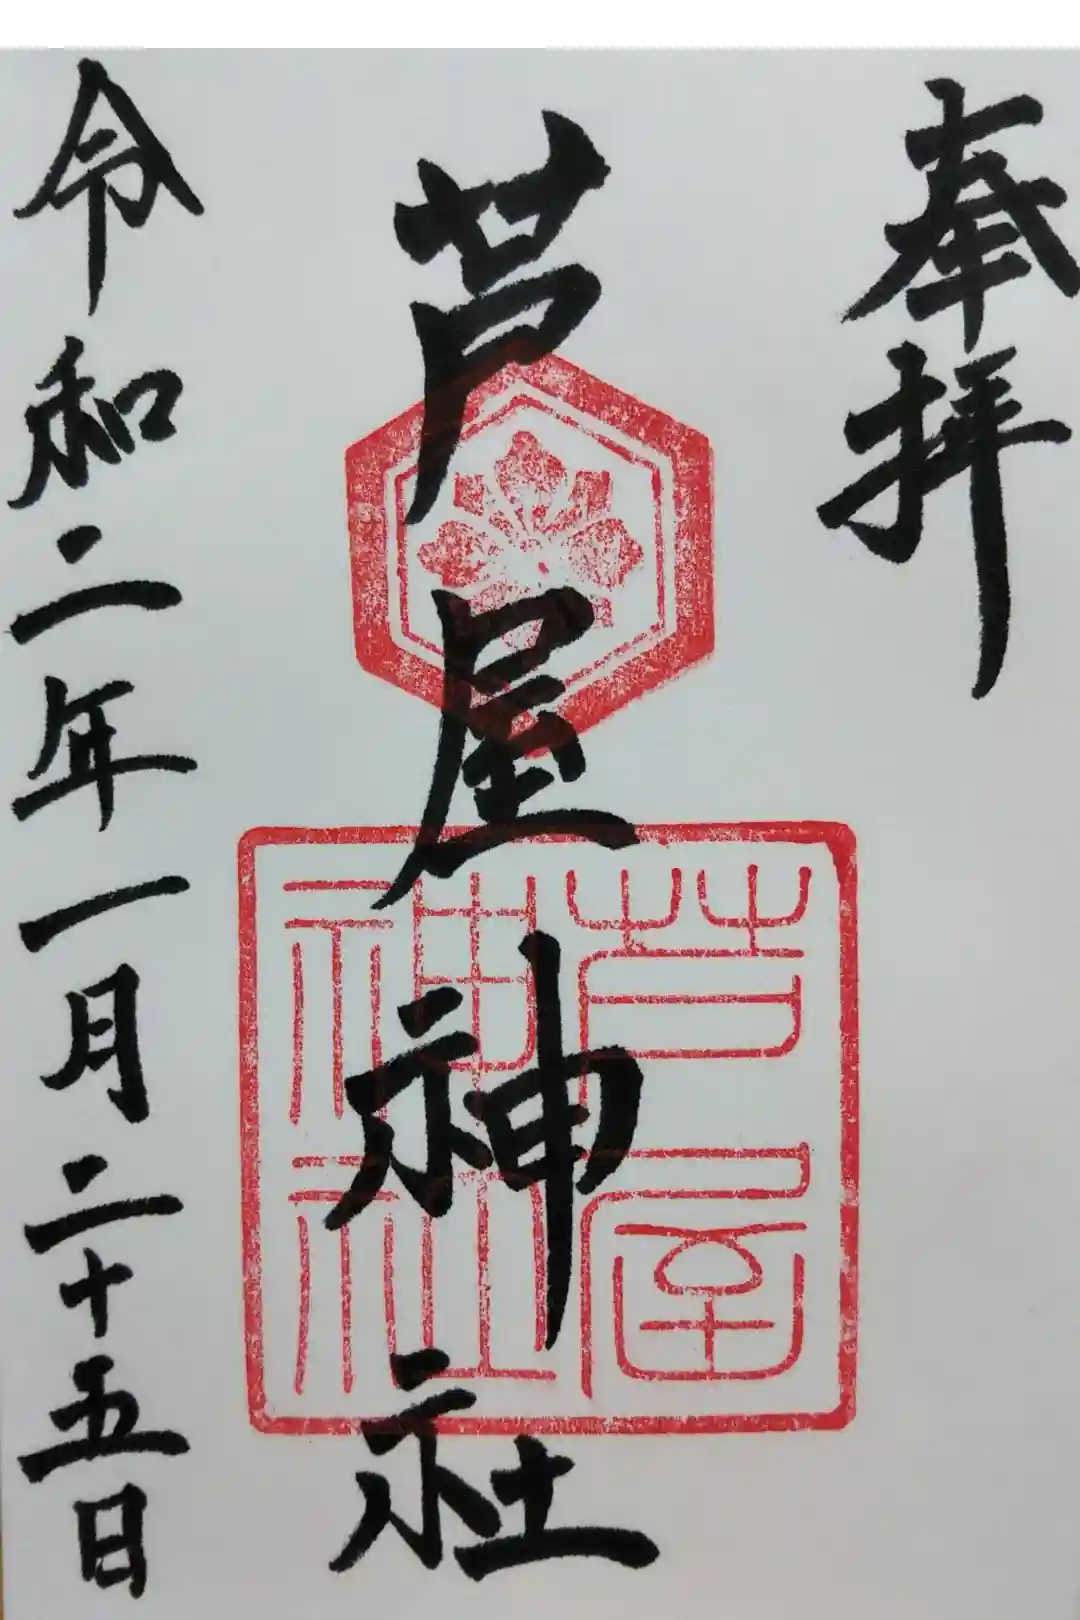 奉拝
芦屋神社
芦屋
神社
令和二年一月二十五日